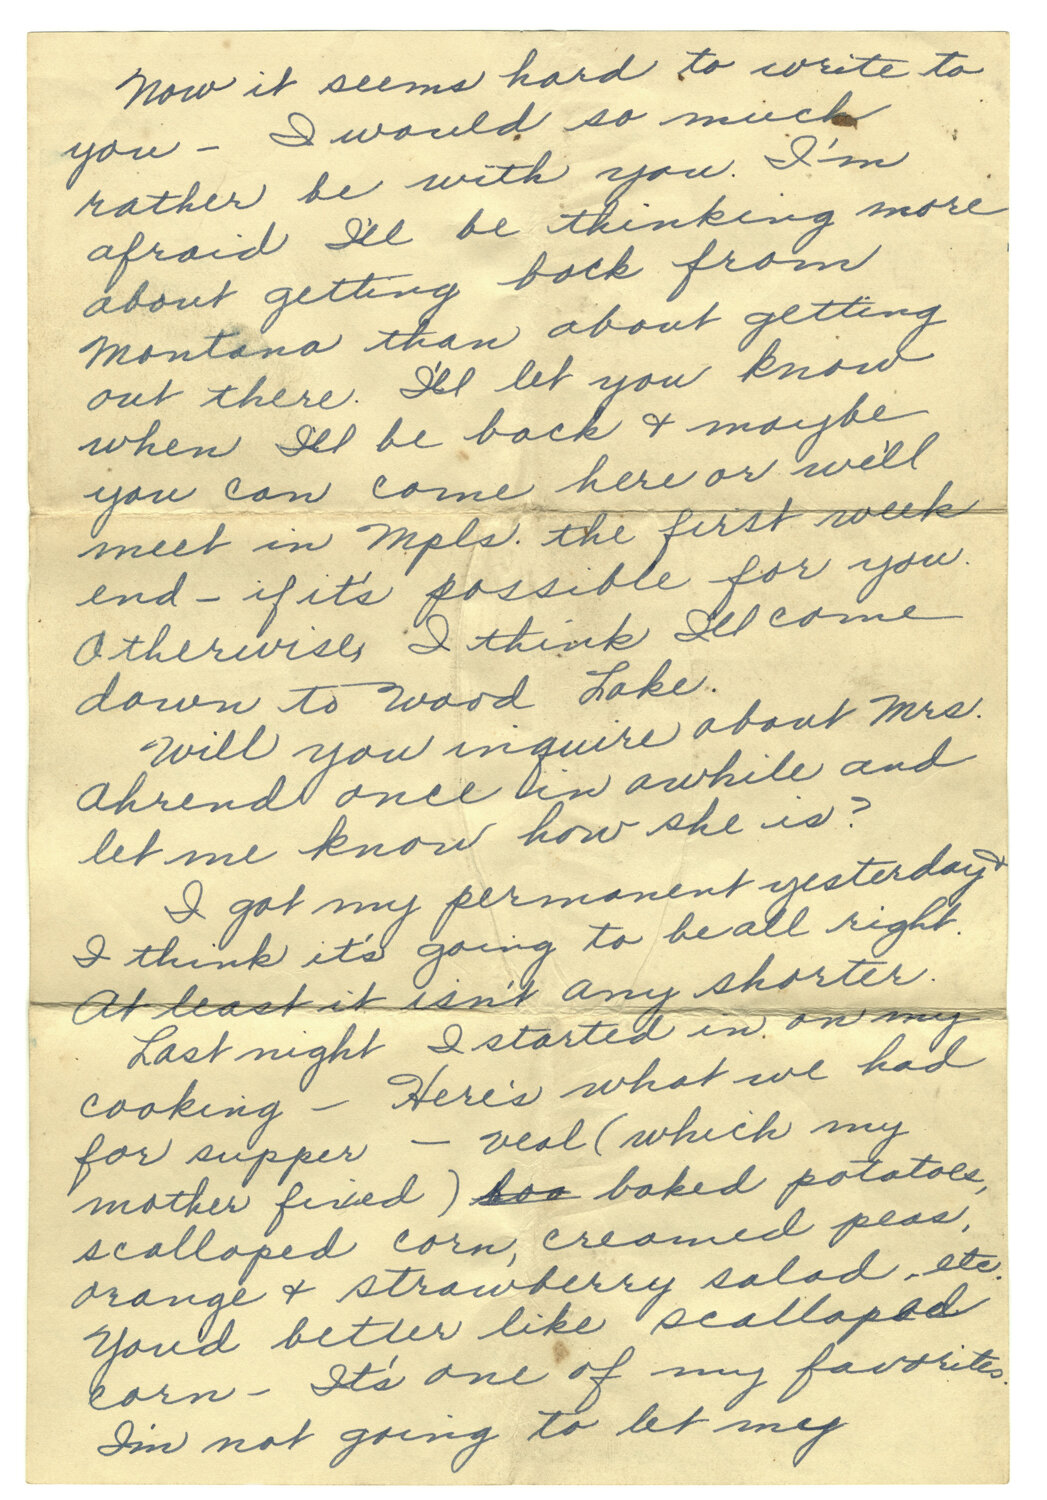 Now it seems hard to write to
you – I would so much
rather be with you. I'm
afraid I'll be thinking more
about getting back from
Montana than about getting
out there. I'll let you know
when I'll be back & maybe
you can come here or we'll
meet in Mpls. the first week
end – if it's possible for you.
Otherwise, I think I'll come
down to Wood Lake.
Will you inquire about Mrs.
Ahrend once in awhile and
let me know how she is?
I got my permanent yesterday &
I think it's going to be all right.
At least it isn't any shorter.
Last night I started in on my
cooking – Here's what we had
for supper – veal (which my
mother fixed) baked potatoes,
scalloped corn, creamed peas,
orange & strawberry salad, etc.
You'd better like scalloped
corn – It's one of my favorites.
I'm not going to let my